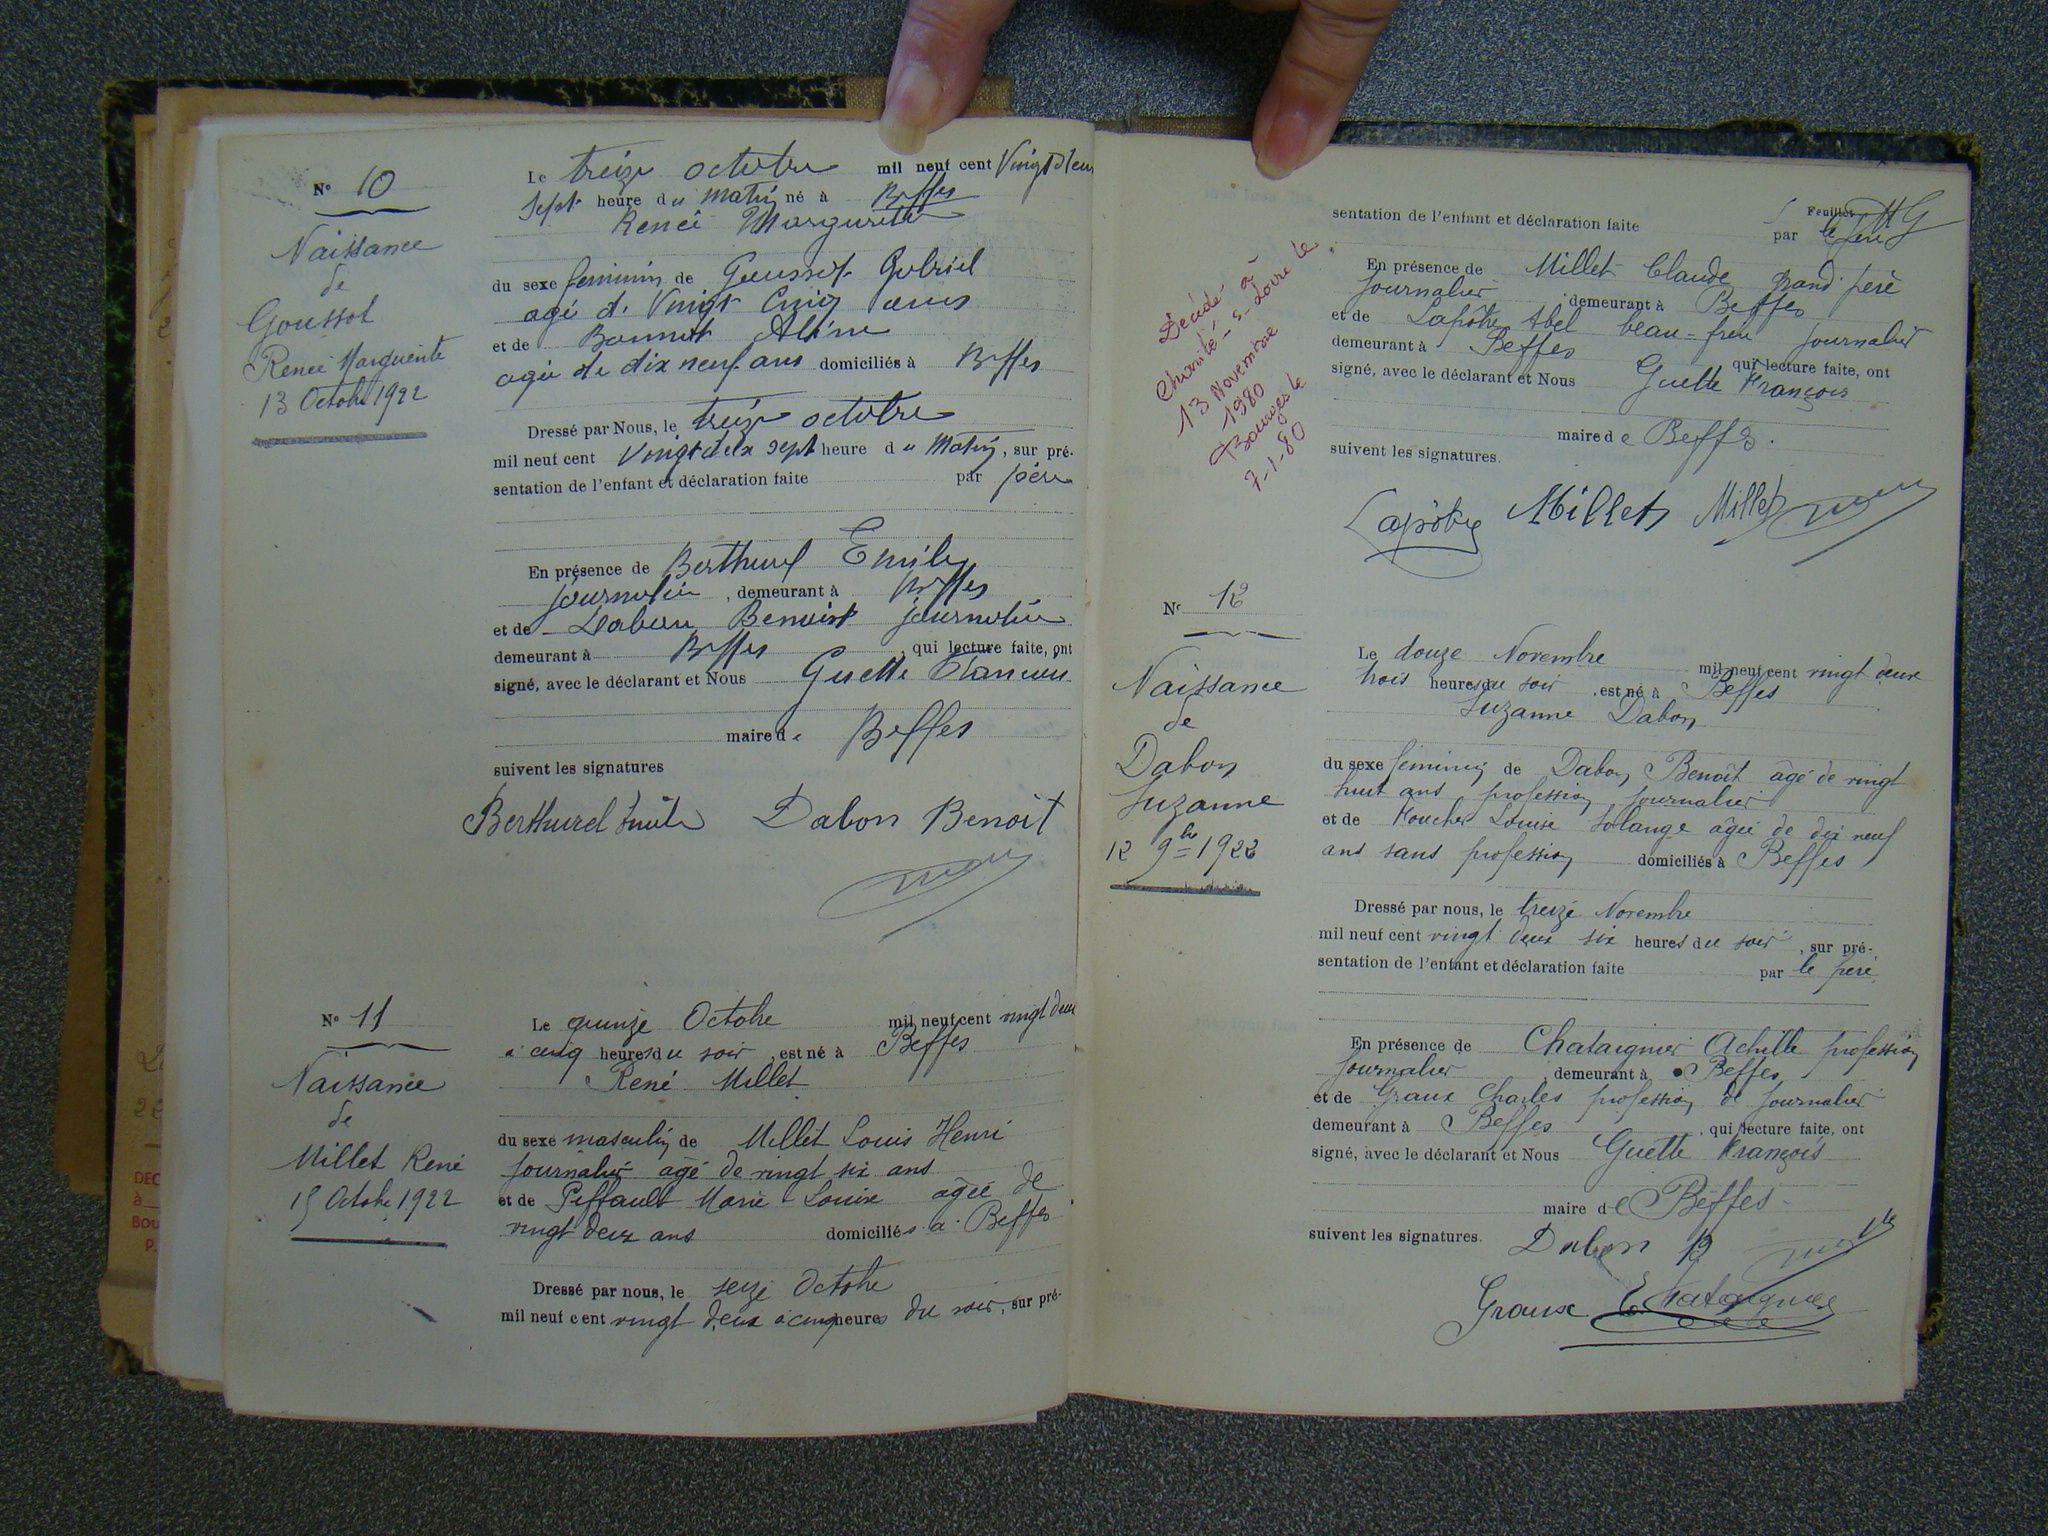 N° 10
Naissance
de
Goussot
Renée Marguerite
13 Octobre 1922
Le treize octobre mil neuf cent Vingt deux
sept heure du matin né à Beffes
Renée Marguerite
du sexe feminin de Goussot Gabriel
agé de Vingt Cinq ans
et de Bonnet Aline
agée de dix neuf ans domiciliés à Beffes
Dressé par Nous, le treize octobre
mil neuf cent Vingt deux sept heure du Matin, sur pré-
sentation de l'enfant et déclaration faite par père
En présence de Berthurel Emile
journalier, demeurant à Beffes
et de Dabon Benoist journalier
demeurant à Beffes, qui lecture faite, ont
signé, avec le déclarant et Nous Guette Francois
maire de Beffes
suivent les signatures
Berthurel Emile Dabon Benoit
N° 11
Naissance
de
Millet René
15 Octobre 1922
Le quinze Octobre mil neuf cent vingt deux
à cinq heures du soir, est né à Beffes
René Millet
du sexe masculin de Millet Louis Henri
journalier agé de vingt six ans
et de Piffault Marie Louise agée de
vingt deux ans domiciliés à Beffes
Dressé par nous, le seize Octobre
mil neuf cent vingt deux à cinq heures du soir, sur pré-
Feuillet
sentation de l'enfant et déclaration faite par le père
Décédé à
Charité-s-Loire le
13 Novembre
1980
Bourges le
7-1-80
En présence de Millet Claude grand père
journalier, demeurant à Beffes
et de Lapôtre Abel beau-frère journalier
demeurant à Beffes qui lecture faite, ont
signé, avec le déclarant et Nous Guette François
maire de Beffes.
suivent les signatures.
Lapôtre Millet Millet
N° 12
Naissance
de
Dabon
Suzanne
12 9bre 1922
Le douze Novembre mil neuf cent vingt deux
trois heures du soir, est né à Beffes
Suzanne Dabon
du sexe féminin de Dabon Benoît âgé de vingt
huit ans profession journalier
et de Foucher Louise Solange âgée de dix neuf
ans sans profession domiciliés à Beffes
Dressé par nous, le treize Novembre
mil neuf cent vingt deux six heures du soir, sur pré-
sentation de l'enfant et déclaration faite par le père
En présence de Chataignier Achille profession
journalier, demeurant à Beffes
et de Graux Charles profession de journalier
demeurant à Beffes, qui lecture faite, ont
signé, avec le déclarant et Nous Guette François
maire de Beffes
suivent les signatures.
Dabon B
Graux Chataignier